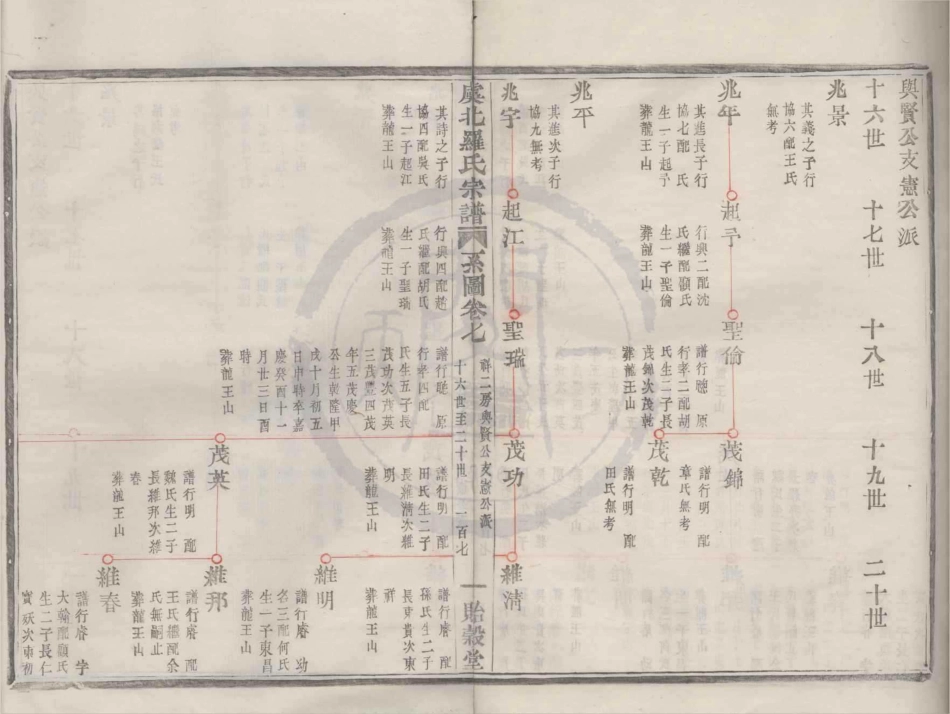 與賢公支憲公派
十六世
十七世
十八世
十九世
二十世
兆景
其義之子行
協六配王氏
無考
兆年
其進長子行
協七配　氏
生一子起予
葬龍王山
起予
行興二配沈
氏繼配顧氏
生一子聖倫
葬龍王山
聖倫
譜行聰　原
行孝二配胡
氏生二子長
茂錦次茂乾
葬龍王山
茂錦
譜行明　配
章氏無考
茂乾
譜行明　配
田氏無考
兆平
其進次子行
協九無考
兆宇
其詩之子行
協四配吳氏
生一子起江
葬龍王山
起江
行興四配趙
氏繼配胡氏
生一子聖瑞
葬龍王山
聖瑞
譜行聰　原
行孝四配
氏生五子長
茂功次茂英
三茂豐四茂
年五茂慶
公生乾隆甲
戌十月初五
日申時卒嘉
慶癸酉十一
月廿三日酉
時
葬龍王山
茂功
譜行明　配
田氏生二子
長維清次維
明
葬龍王山
維清
譜行睿　配
孫氏生二子
長東貴次東
祥
葬龍王山
維明
譜行睿　功
名三配何氏
生一子東昌
葬龍王山
茂英
譜行明　配
魏氏生二子
長維邦次維
春
葬龍王山
維邦
譜行睿　配
王氏繼配余
氏無嗣止
葬龍王山
維春
譜行睿　字
大翰配顧氏
生二子長仁
寶　次東初
虞北羅氏宗譜
系圖卷七
科二房與賢公支憲公派
十六世至二十世　一百七
貽穀堂